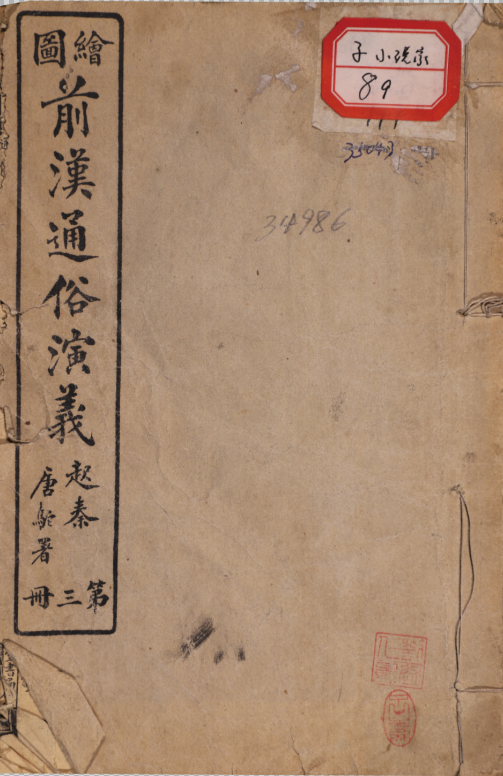 繪圖
前漢通俗演義
起秦
唐駝署
第三冊
子 小说家
89
34986